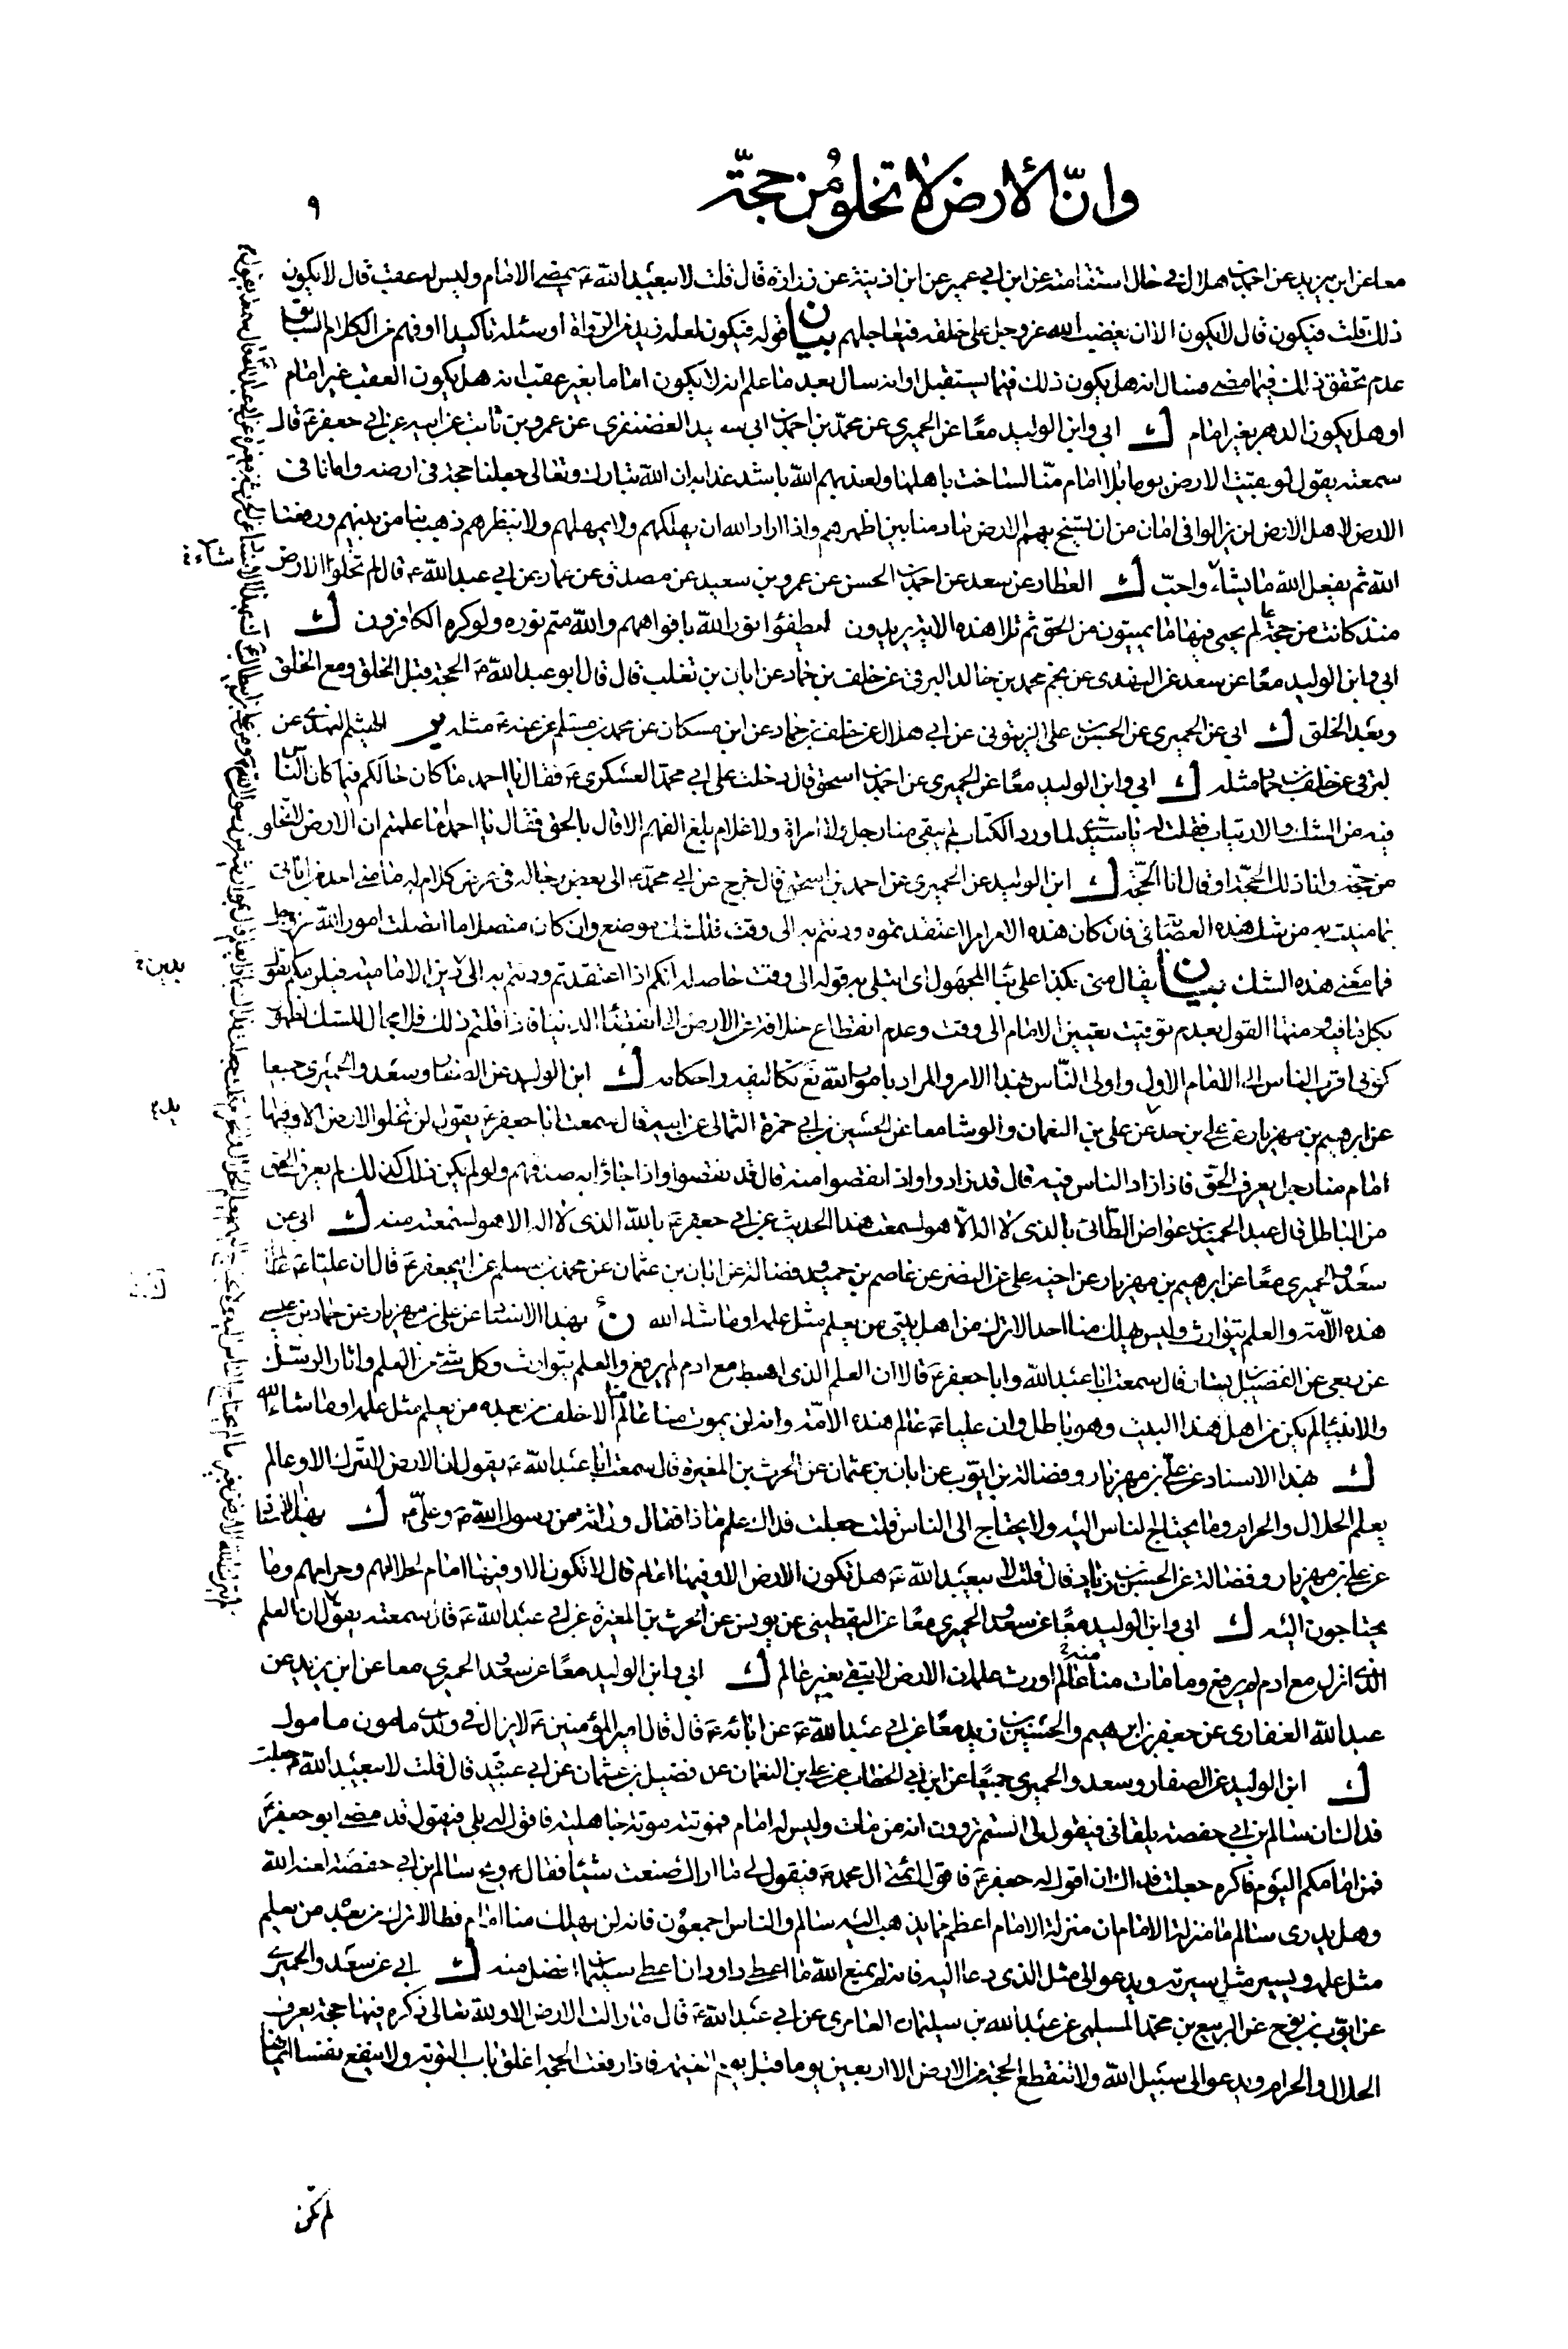 وانّ الأرض لا تخلو من حجّة
٩
معا عن ابن يزيد عن احمد بن هلال في حال استقامته عن ابن ابي عمير عن ابن اذينة عن زرارة قال قلت لابيعبد الله ع يمضي الامام وليس له عقب قال لا يكون
ذلك قلت فيكون قال لا يكون الا ان يغضب الله عز وجل على خلقه فيعاجلهم بيان قوله فيكون لعله زيد من الرواة او سئله تاكيدا او فهم من الكلام السابق
عدم تحقق ذلك فيما مضى فسال انه هل يكون ذلك فيما يستقبل او انه سال بعد ما علم انه لا يكون اماما بغير عقب انه هل يكون العقب غير امام
او هل يكون الدهر بغير امام ك ابي وابن الوليد معًا عن الحميري عن محمّد بن احمد بن ابي سعيد الغضنفري عن عمرو بن ثابت عن ابيه عن ابي جعفر ع قال
سمعته يقول لو بقيت الارض يوما بلا امام منّا لساخت باهلها ولعذبهم الله باشد عذابه ان الله تبارك وتعالى جعلنا حجة في ارضه وامانا في
الارض لاهل الارض لن يزالوا في امان من ان تسيخ بهم الارض ما دمنا بين اظهرهم واذا اراد الله ان يهلكهم ولا يمهلهم ولا ينظرهم ذهب بنا من بينهم ورفعنا
الله ثم يفعل الله ما يشاء واحبّ ك العطار عن سعد عن احمد بن الحسن عن عمرو بن سعيد عن مصدق عن عمار عن ابي عبد الله ع قال لم تخلوا الارض
منذ كانت من حجة عالم يحيى فيها ما يميتون من الحق ثم تلا هذه الاية يريدون ليطفؤا نور الله بافواههم والله متم نوره ولو كره الكافرون ك
ابي وابن الوليد معًا عن سعد عن النهدي عن نجم محمد بن خالد البرقي عن خلف بن حماد عن ابان بن تغلب قال قال ابو عبد الله ع الحجة قبل الخلق ومع الخلق
وبعد الخلق ك ابي عن الحميري عن الحسن بن علي الزيتوني عن ابي هلال عن خلف بن حماد عن ابن مسكان عن محمد بن مسلم عن عنه ع مثله ير الهيثم النهدي عن
البرقي عن خلف بن حماد مثله ك ابي وابن الوليد معًا عن الحميري عن احمد بن اسحق قال دخلت على ابي محمد العسكري ع فقال يا احمد ما كان حالكم فيما كان الناس
فيه من الشك والارتياب فقلت له يا سيّدي لما ورد الكتاب لم يبق منا رجل ولا امراة ولا غلام بلغ الفهم الا قال بالحق فقال يا احمد اما علمتم ان الارض لا تخلو
من حجّة وانا ذلك الحجّة او قال انا الحجّة ك ابن الوليد عن الحميري عن احمد بن اسحق قال خرج عن ابي محمد ع الى بعض رجاله في عرض كلام له ما مني احد من ابائي
بما منيت به من شك هذه العصابة في فان كان هذا الامر امرا اعتقدتموه ودنتم به الى وقت فللشك موضع وان كان متصلا ما اتصلت امور الله عز وجل
فما معنى هذه الشك بيان يقال مني بكذا على بناء المجهول اي ابتلى به قوله الى وقت حاصله انكم اذا اعتقدتم ودنتم به الى دين الامامية فيلزمكم بقول
بكل ما فيه ومنها القول بعدم توقيت تعيين الامام الى وقت وعدم انقطاع خلافة عن الارض الى انقضاء الدنيا فاذا قلتم ذلك فلا مجال للشك لظهور
كوني اقرب الناس الى الامام الاول واولى النّاس بهذا الامر والمراد بامور الله تع تكاليفه واحكامه ك ابن الوليد عن الصفار وسعد والحميري جميعا
عن ابرهيم بن مهزيار عن علي بن حديد عن علي بن النعمان والوشا معا عن الحسين بن ابي حمزة الثمالي عن ابيه قال سمعت ابا جعفر ع يقول لن تخلو الارض الا وفيها
امام منا رجل يعرف الحق فاذا زاد الناس فيه قال قد زادوا واذا نقصوا منه قال قد نقصوا واذا جاؤا به صدقهم ولو لم يكن ذلك كذلك لم يعرف الحق
من الباطل قال عبد الحميد بن عواض الطائي بالذي لا اله الا هو لسمعت هذا الحديث عن ابي جعفر ع بالله الذي لا اله الا هو لسمعته منه ك ابي عن
سعد والحميري معًا عن ابرهيم بن مهزيار عن اخيه علي عن النضر عن عاصم بن حميد وفضالة عن ابان بن عثمان عن محمد بن مسلم عن ابيجعفر ع قال ان عليّا ع عالم
هذه الامّة والعلم يتوارث وليس يهلك منا احد الا ترك من اهل بيتي من يعلم مثل علمه او ما شاء الله ك بهذا الاسناد عن علي بن مهزيار عن حماد بن عيسى
عن ربعي عن الفضيل بن يسار قال سمعت ابا عبد الله وابا جعفر ع قالا ان العلم الذي اهبط مع ادم لم يرفع والعلم يتوارث وكل شيء من العلم واثار الرسل
والانبياء لم يكن من اهل هذا البيت وهو باطل وان عليا ع عالم هذه الامّة وانه لن يموت منا عالم الا خلف من بعده من يعلم مثل علمه او ما شاء الله
ك بهذا الاسناد عن علي بن مهزيار وفضالة بن ايّوب عن ابان بن عثمان عن الحرث بن المغيرة قال سمعت ابا عبد الله ع يقول ان الارض لا تترك الا وعالم
يعلم الحلال والحرام وما يحتاج الناس اليه ولا يحتاج الى الناس قلت جعلت فداك علم ماذا فقال وراثة من رسول الله ص وعليّ ع ك بهذا الاسناد
عن علي بن مهزيار وفضالة عن الحسن بن زياد قال قلت لابيعبد الله ع هل تكون الارض الا وفيها امام قال لا تكون الا وفيها امام لحلالهم وحرامهم وما
يحتاجون اليه ك ابي وابن الوليد معًا عن سعد والحميري معًا عن اليقطيني عن يونس عن الحرث بن المغيرة عن ابي عبد الله ع قال سمعته يقول ان العلم
الذي انزل مع ادم لم يرفع وما مات منا عالم الا ورث علمه ان الارض لا يبقى بغير عالم ك ابي وابن الوليد معًا عن سعد والحميري معا عن ابن يزيد عن
عبد الله الغفاري عن جعفر بن ابرهيم والحسين بن زيد معًا عن ابي عبد الله ع عن ابائه ع قال قال امير المؤمنين ع لا يزال في ولدي مامون مامول
ك ابن الوليد عن الصفار وسعد والحميري جميعًا عن ابن ابي الخطاب عن علي بن النعمان عن فضيل بن عثمان عن ابي عبيد قال قلت لابيعبد الله ع جعلت
فداك ان سالم بن ابي حفصة يلقاني فيقول لي الستم تروون انه من مات وليس له امام فموتته موتة جاهلية فاقول له بلى فيقول قد مضى ابو جعفر ع
فمن امامكم اليوم فاكره جعلت فداك ان اقول له جعفر ع فاقول ائمتي ال محمد ع فيقول لي ما اراك صنعت شيئا فقال ع ويح سالم بن ابي حفصة لعنه الله
وهل يدري سالم ما منزلة الامام ان منزلة الامام اعظم مما يذهب اليه سالم والناس اجمعون فانه لن يهلك منا امام قط الا ترك من بعده من يعلم
مثل علمه ويسير مثل سيرته ويدعو الى مثل الذي دعا اليه فانه لم يمنع الله ما اعطى داود ان اعطى سليمان افضل منه ك ابي عن سعد والحميري
عن ايّوب بن نوح عن الربيع بن محمّد المسلي عن عبد الله بن سليمان العامري عن ابي عبد الله ع قال ما زالت الارض الا ولله تعالى ذكره فيها حجة يعرف
الحلال والحرام ويدعو الى سبيل الله ولا تنقطع الحجة من الارض الا اربعين يوما قبل يوم القيمة فاذا رفعت الحجة اغلق باب التوبة ولا ينفع نفسا ايمانها
لم تكن